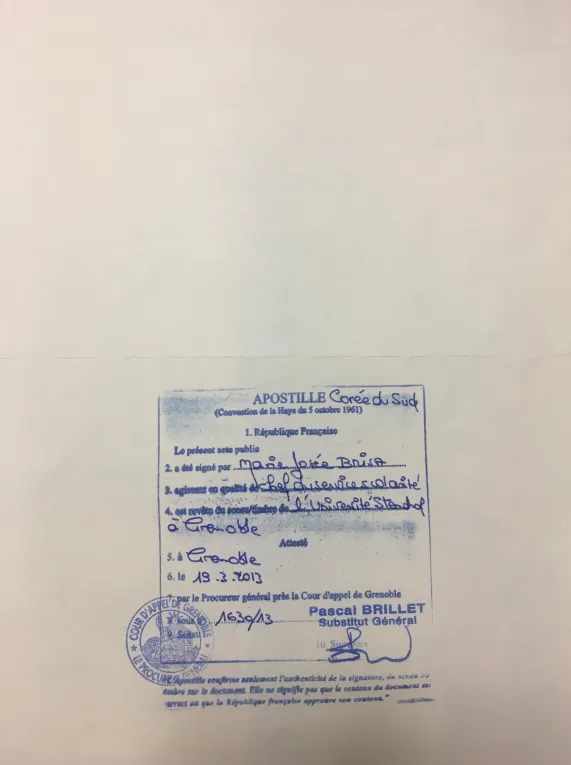 APOSTILLE Corée du Sud
(Convention de la Haye du 5 octobre 1961)
1. République Française
Le présent acte public
2. a été signé par Marie Josée
3. agissant en qualité de Chef du service scolarité
4. est revêtu du sceau/timbre de l'Université Stendhal
à Grenoble
Attesté
5. à Grenoble
6. le 19.3.2013
7. par le Procureur général près la Cour d'appel de Grenoble
8 sous 1630/13
Pascal BRILLET
Substitut Général
9. Sceau
10 Signature
COUR D'APPEL DE GRENOBLE
LE PROCUREUR
"L'Apostille confirme seulement l'authenticité de la signature, du sceau ou
timbre sur le document. Elle ne signifie pas que le contenu du document est
correct ou que la République française approuve son contenu."